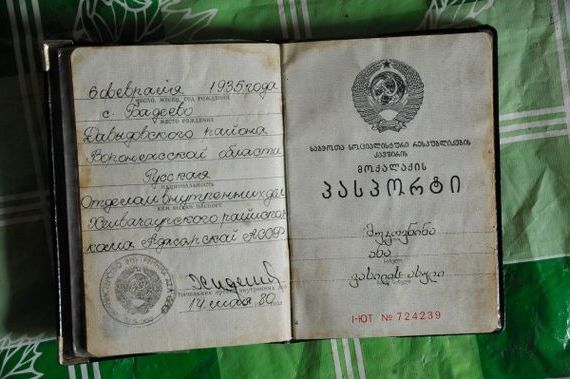 6 февраля 1935 года
число, месяц, год рождения
с. Бадеево
место рождения
Давыдовского района
Воронежской области
Русская
национальность
Отделом внутренних дел
кем выдан паспорт
Хелвачаурского райиспол-
кома Аджарской АССР
14 мая 80
საბჭოთა სოციალისტური რესპუბლიკების
კავშირის
მოქალაქის
პასპორტი
ანა
I-ЮТ № 724239